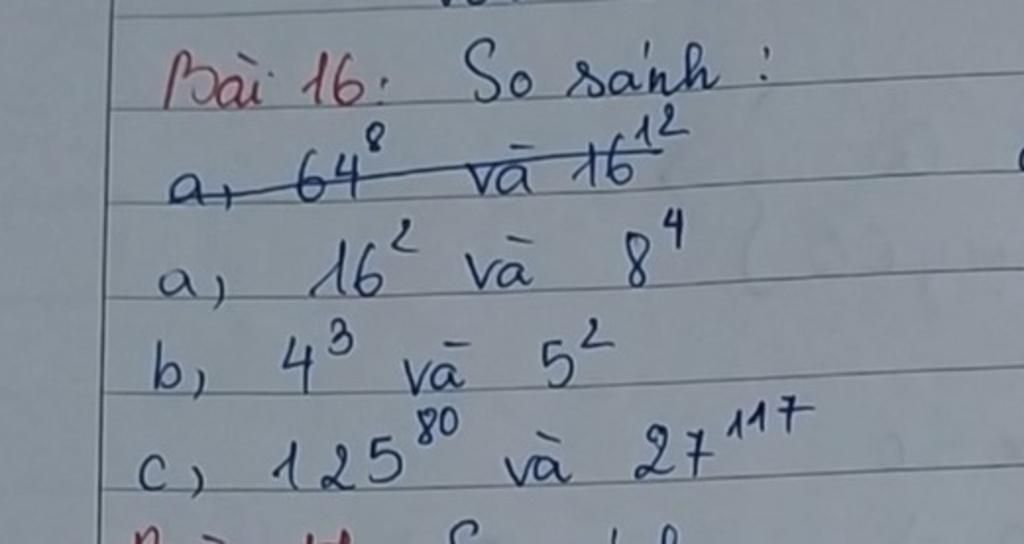 Bài 16: So sánh:
a, 64⁸ và 16¹²
a, 16² và 8⁴
b, 4³ và 5²
c, 125⁸⁰ và 27¹¹⁷